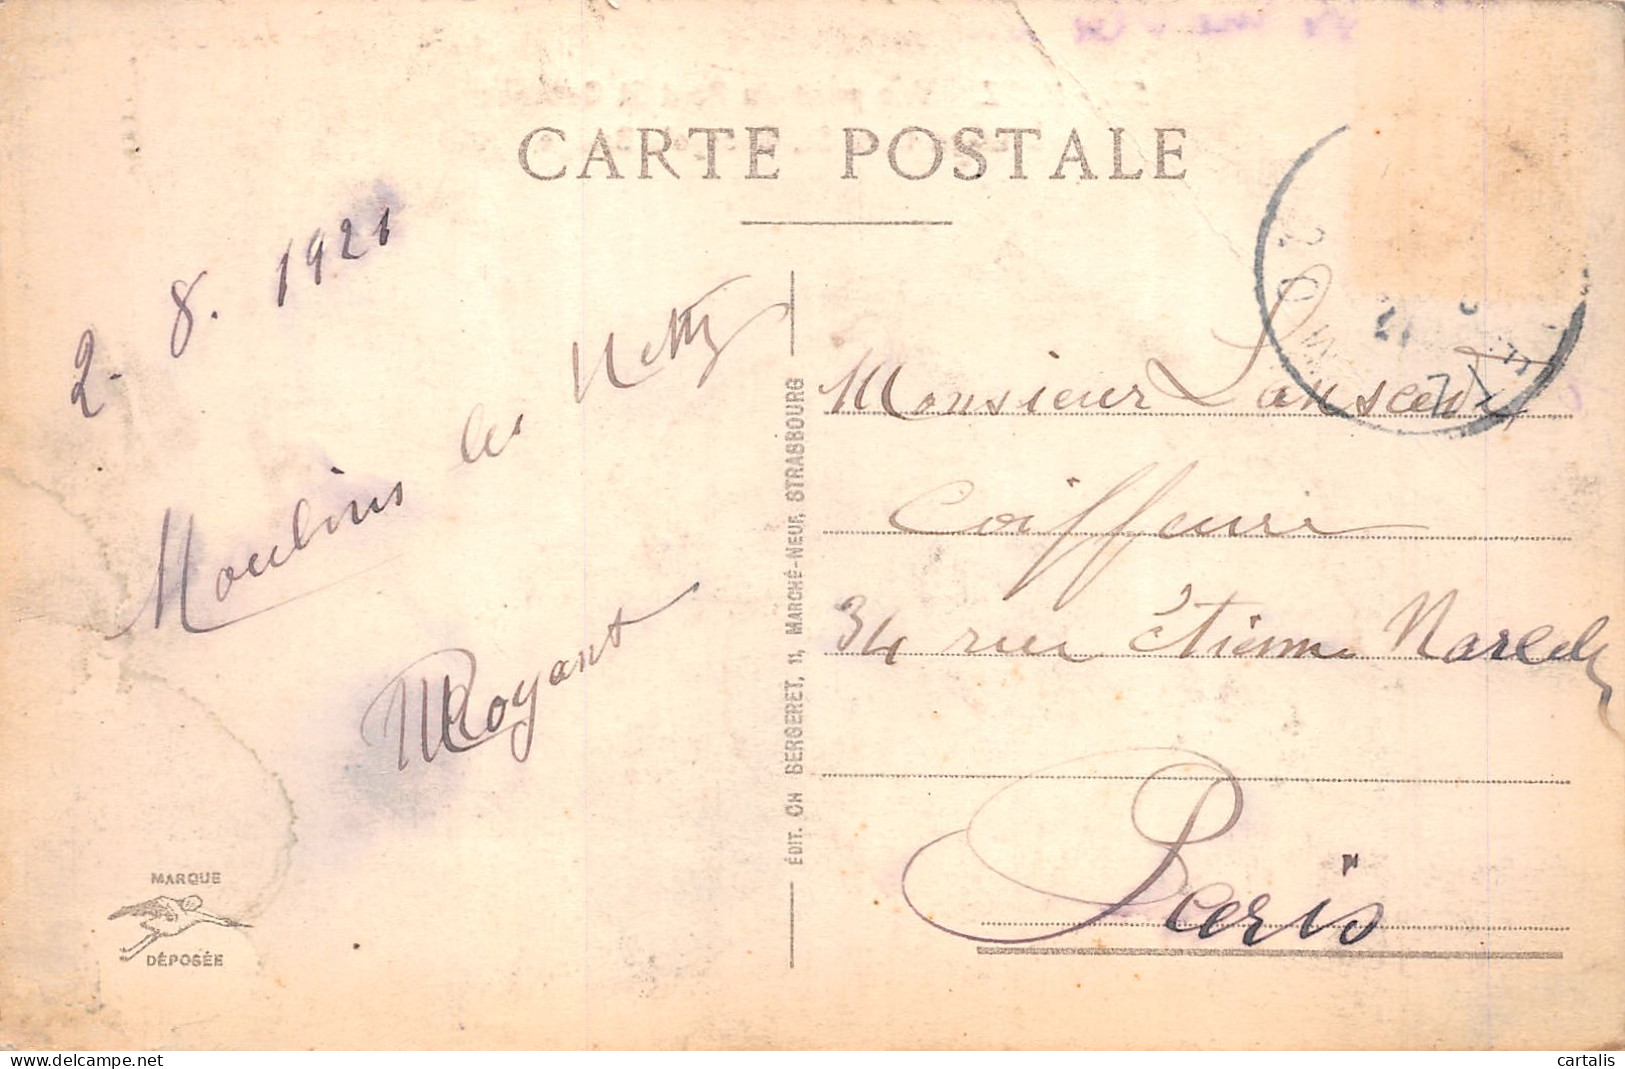 CARTE POSTALE
2. 8. 1921
Moulins les Metz
Royant
MARQUE
DÉPOSÉE
ÉDIT. CH BERGERET, 11, MARCHÉ-NEUF, STRASBOURG
Monsieur
Coiffeur
34 rue Étienne Marcel
Paris
cartalis
www.delcampe.net